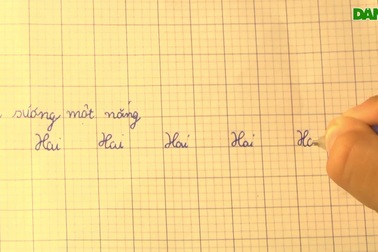 DAN
sương một nắng
Hai Hai Hai Hai Ha